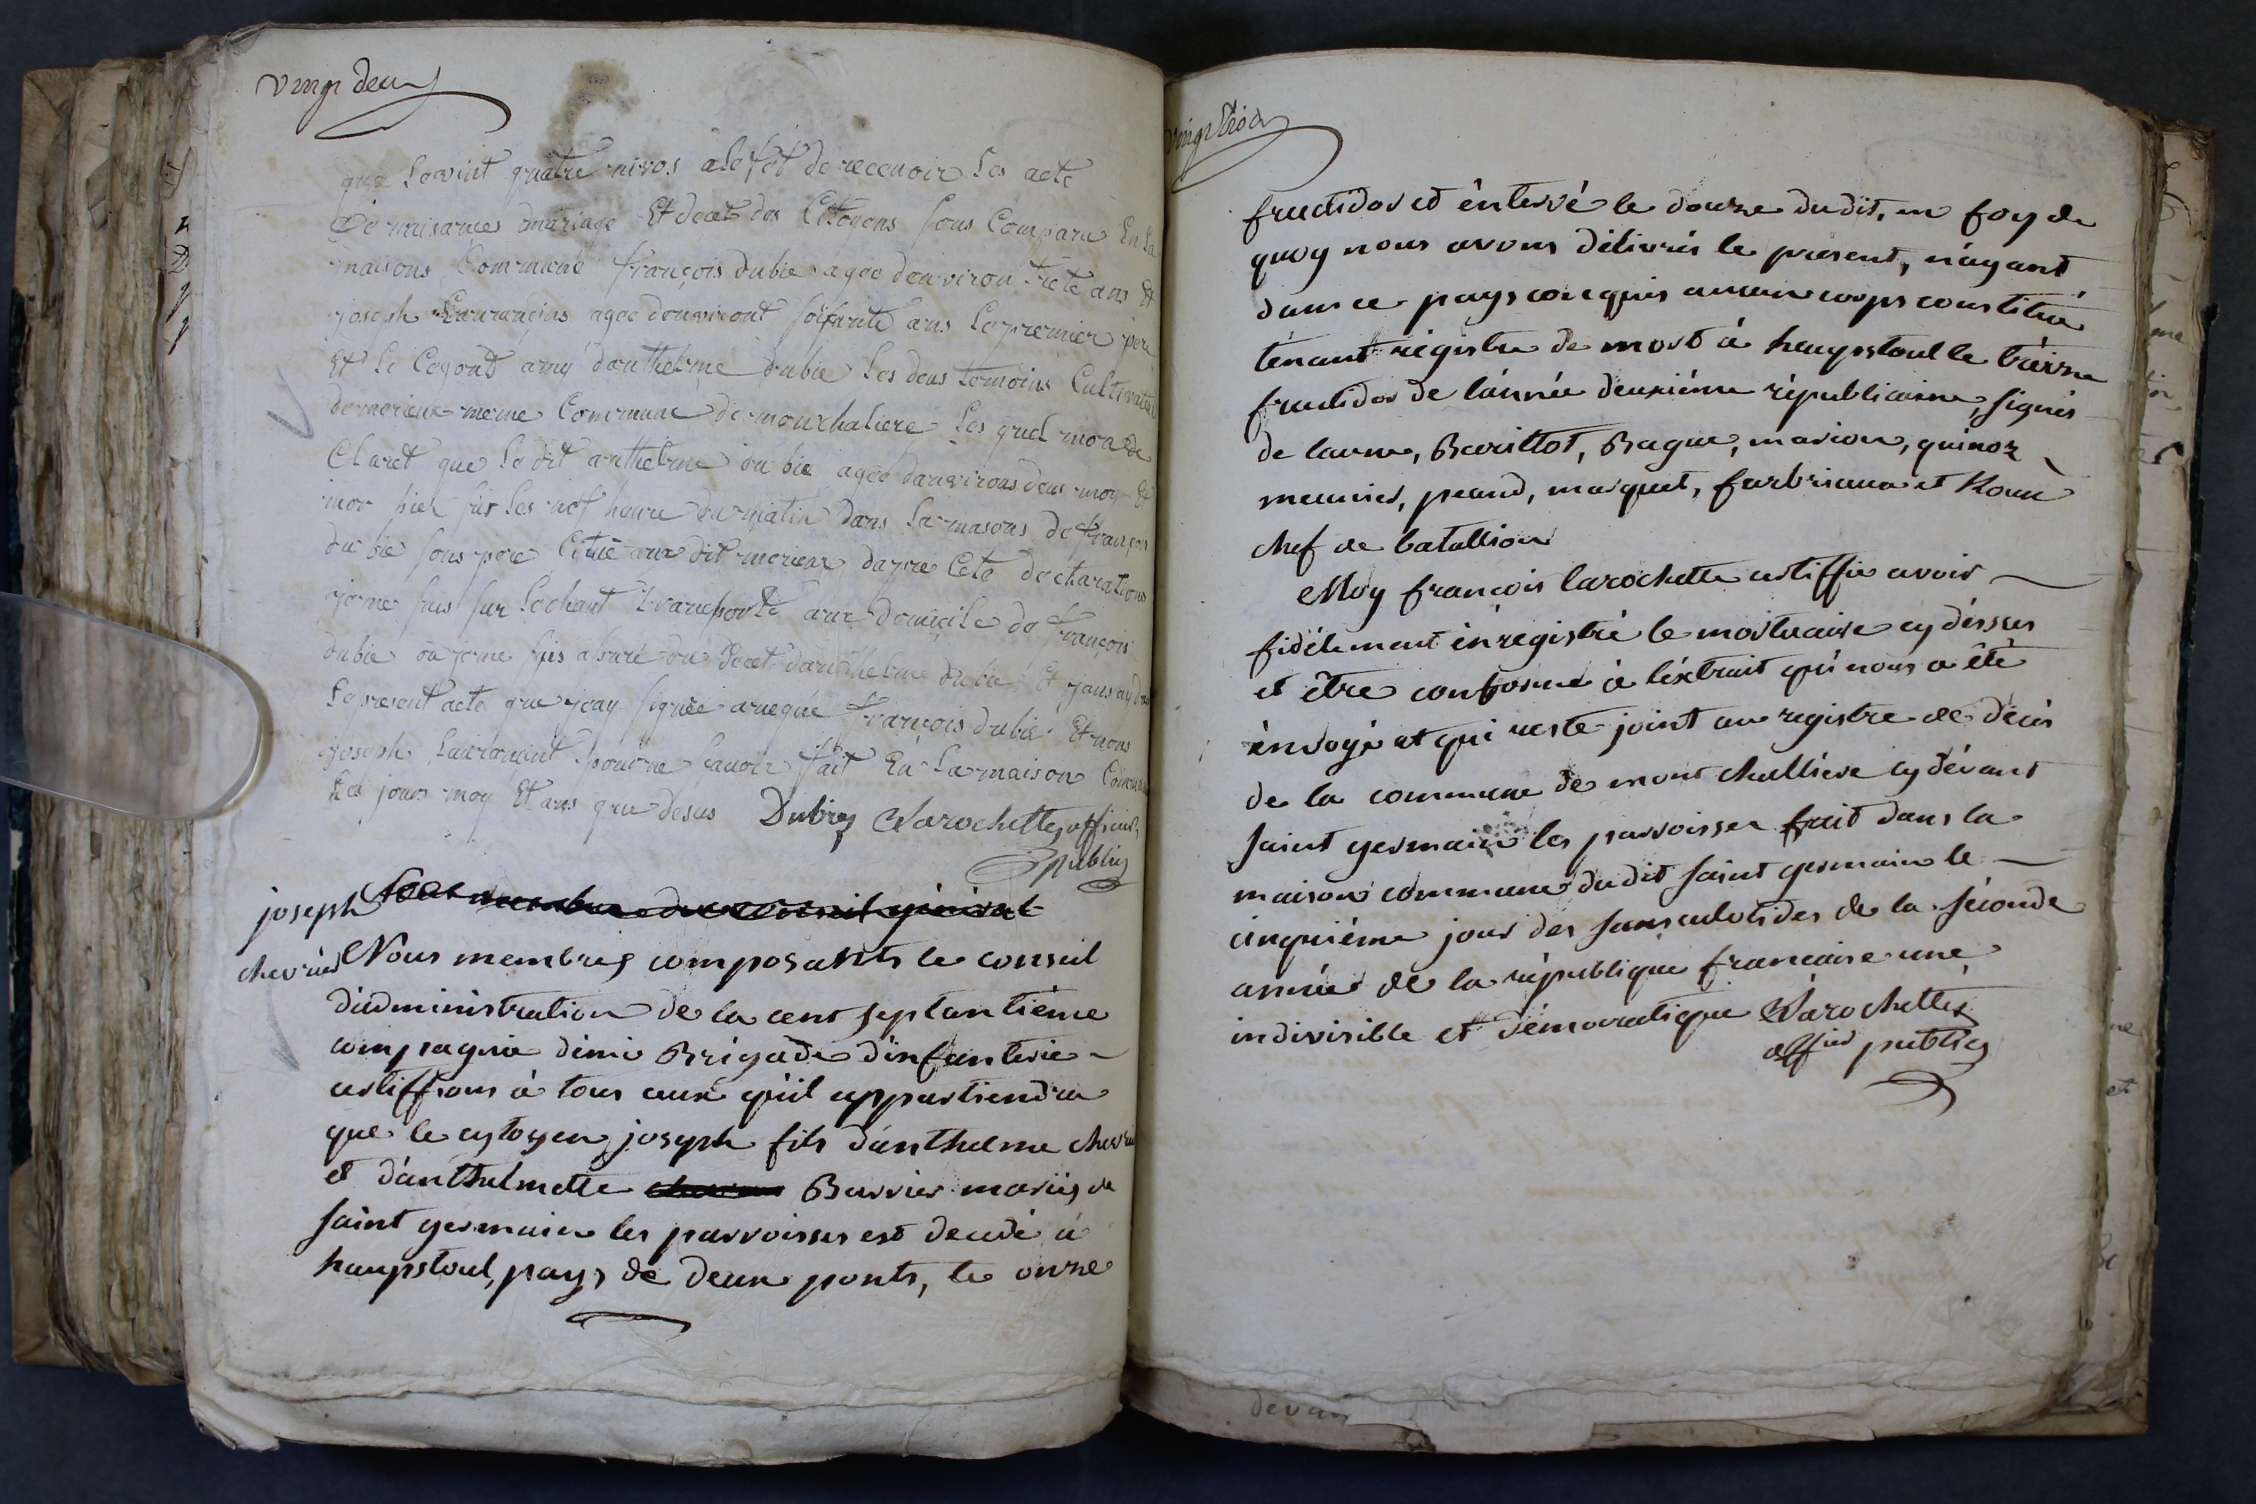 vingt deux
que le vint quatre nivos a lefet de recevoir les acte
De naisance mariage Et decet des Citoyens sons Comparu En la
maisons Commune françois dubie agée denviron trete ans Et
joseph agée denviront soisante ans le premier père
Et le Cegond amy danthelme dubie les deus temoins Cultivateur
de morieux meme Commune de monchaliere les quel mon de
Claret que le dit anthelme dubie agée danvirons deus moy Et
mor hier sur les nof heure du matin dans la masons de françois
dubie sons pere Cituè au dit morieux dapre Cete declarations
je me suis sur lechant transporté au domicile de françois
dubie ou je me suis asuré du decet danthelme dubie Et
le present acte que jeay signée avèque françois dubie Et nons
joseph pour ne savoir fait En la maison Commune
les jours moy Et ans que desus Dubiez Larochette officier
public
joseph
chevrier Nous membres composants le conseil
d'administration de la cent septantième
compagnie démi Brigade d'infanterie
certiffions à tous ceux qu'il appartiendra
que le cytoyen joseph fils d'anthelme chevrier
et d'anthelmette Buvrier mariés de
saint germain les parroisses est decedé à
haupstoul, pays de deux ponts, le onze
vingt trois
fructidor et énterré le douze dudit, en foy de
quoy nous avons délivrés le présent, n'ayant
dans ce pays conquis aucun corps constitué
ténant régistre de mort à haupstoul le treize
fructidor de l'année deuxiéme républicaine, signés
de laune, Barittot, Bague, marion, quinoz
meunier, peaud, marquet, farbriaux et Roux
chef de batallion
Moy françois larochette certiffie avoir
fidélement énregistré le mortuaire cy déssus
et être conforme à l'éxtrait qui nous a êté
énvoyé et qui reste joint au registre de décés
de la commune de mont challiere cy dévant
saint germain les parroisses fait dans la
maison commune dudit saint germain le
cinquiéme jour des sansculotides de la séconde
année de la république francaise une
indivisible et démocratique Larochette
officier public
devan